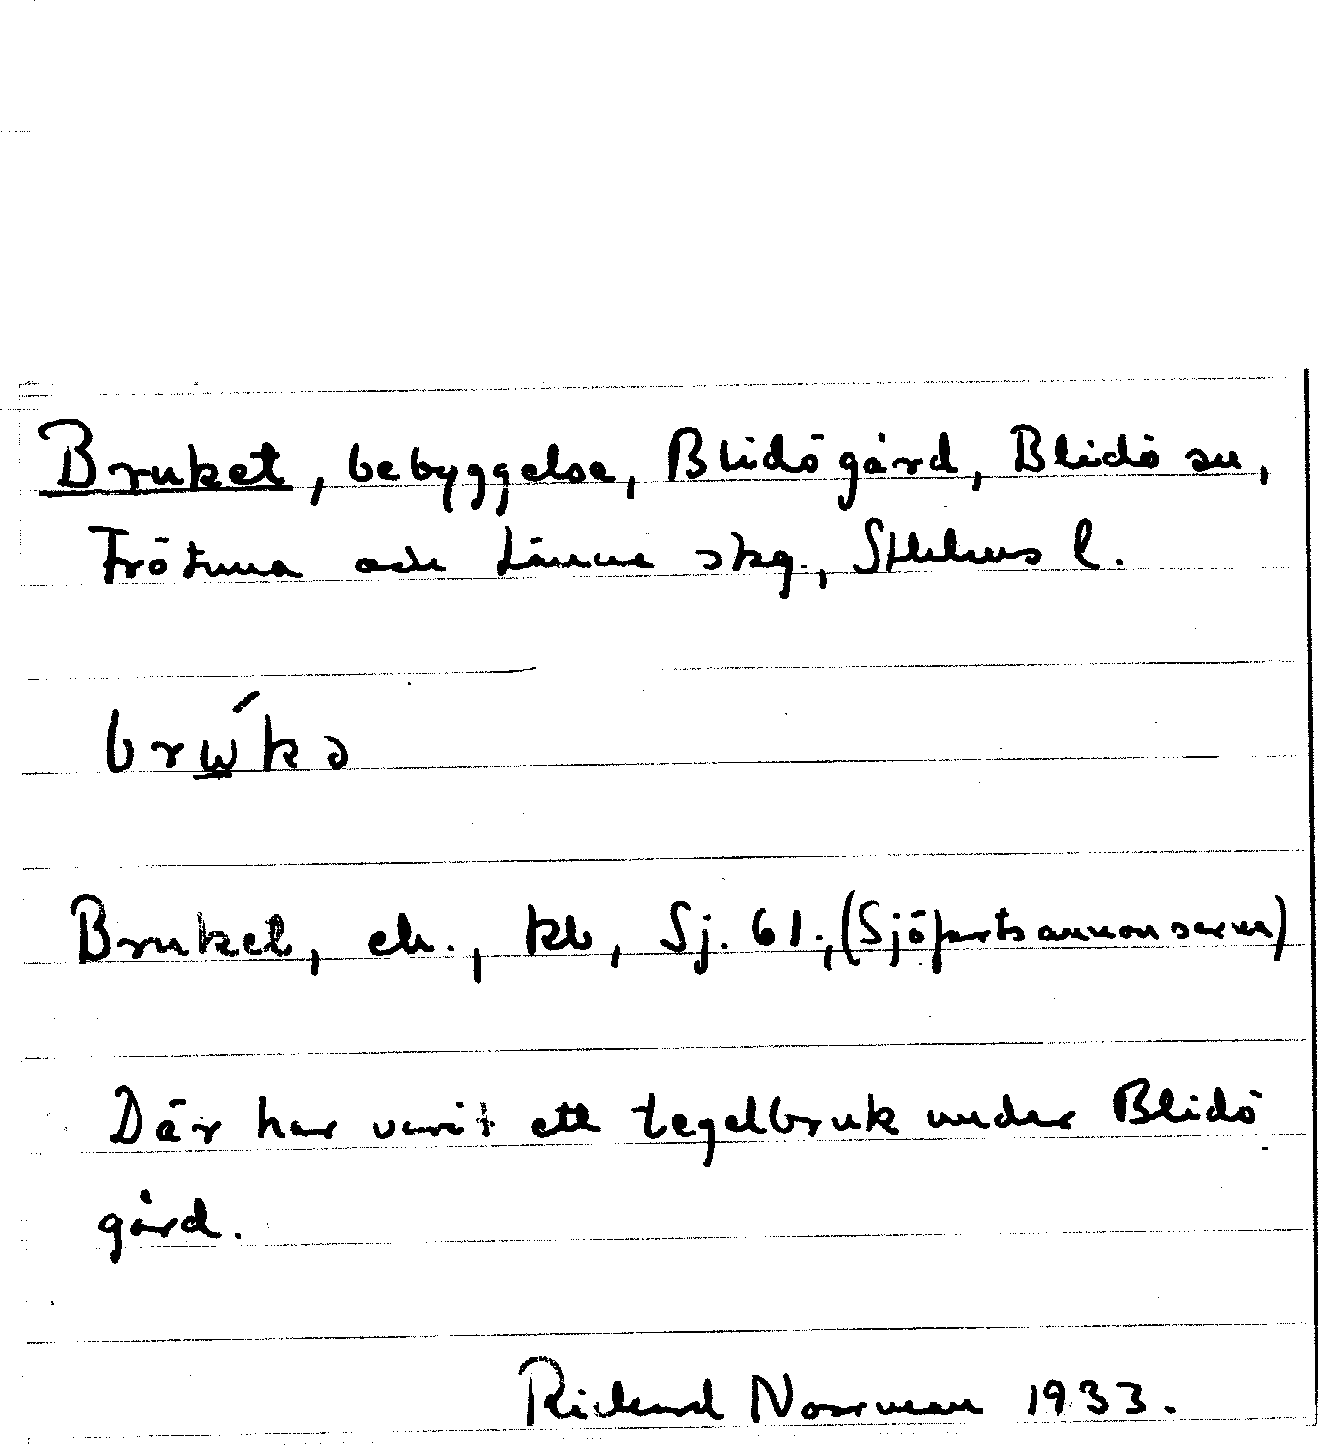 Bruket, bebyggelse, Blidö gård, Blidö sn,
Frötuna och Länna skg., Sthlms l.
brẃkə
Bruket, ek., kb, Sj. 61., (Sjöfartsannonserna)
Där har varit ett tegelbruk under Blidö
gård.
Rickard Norrman 1933.